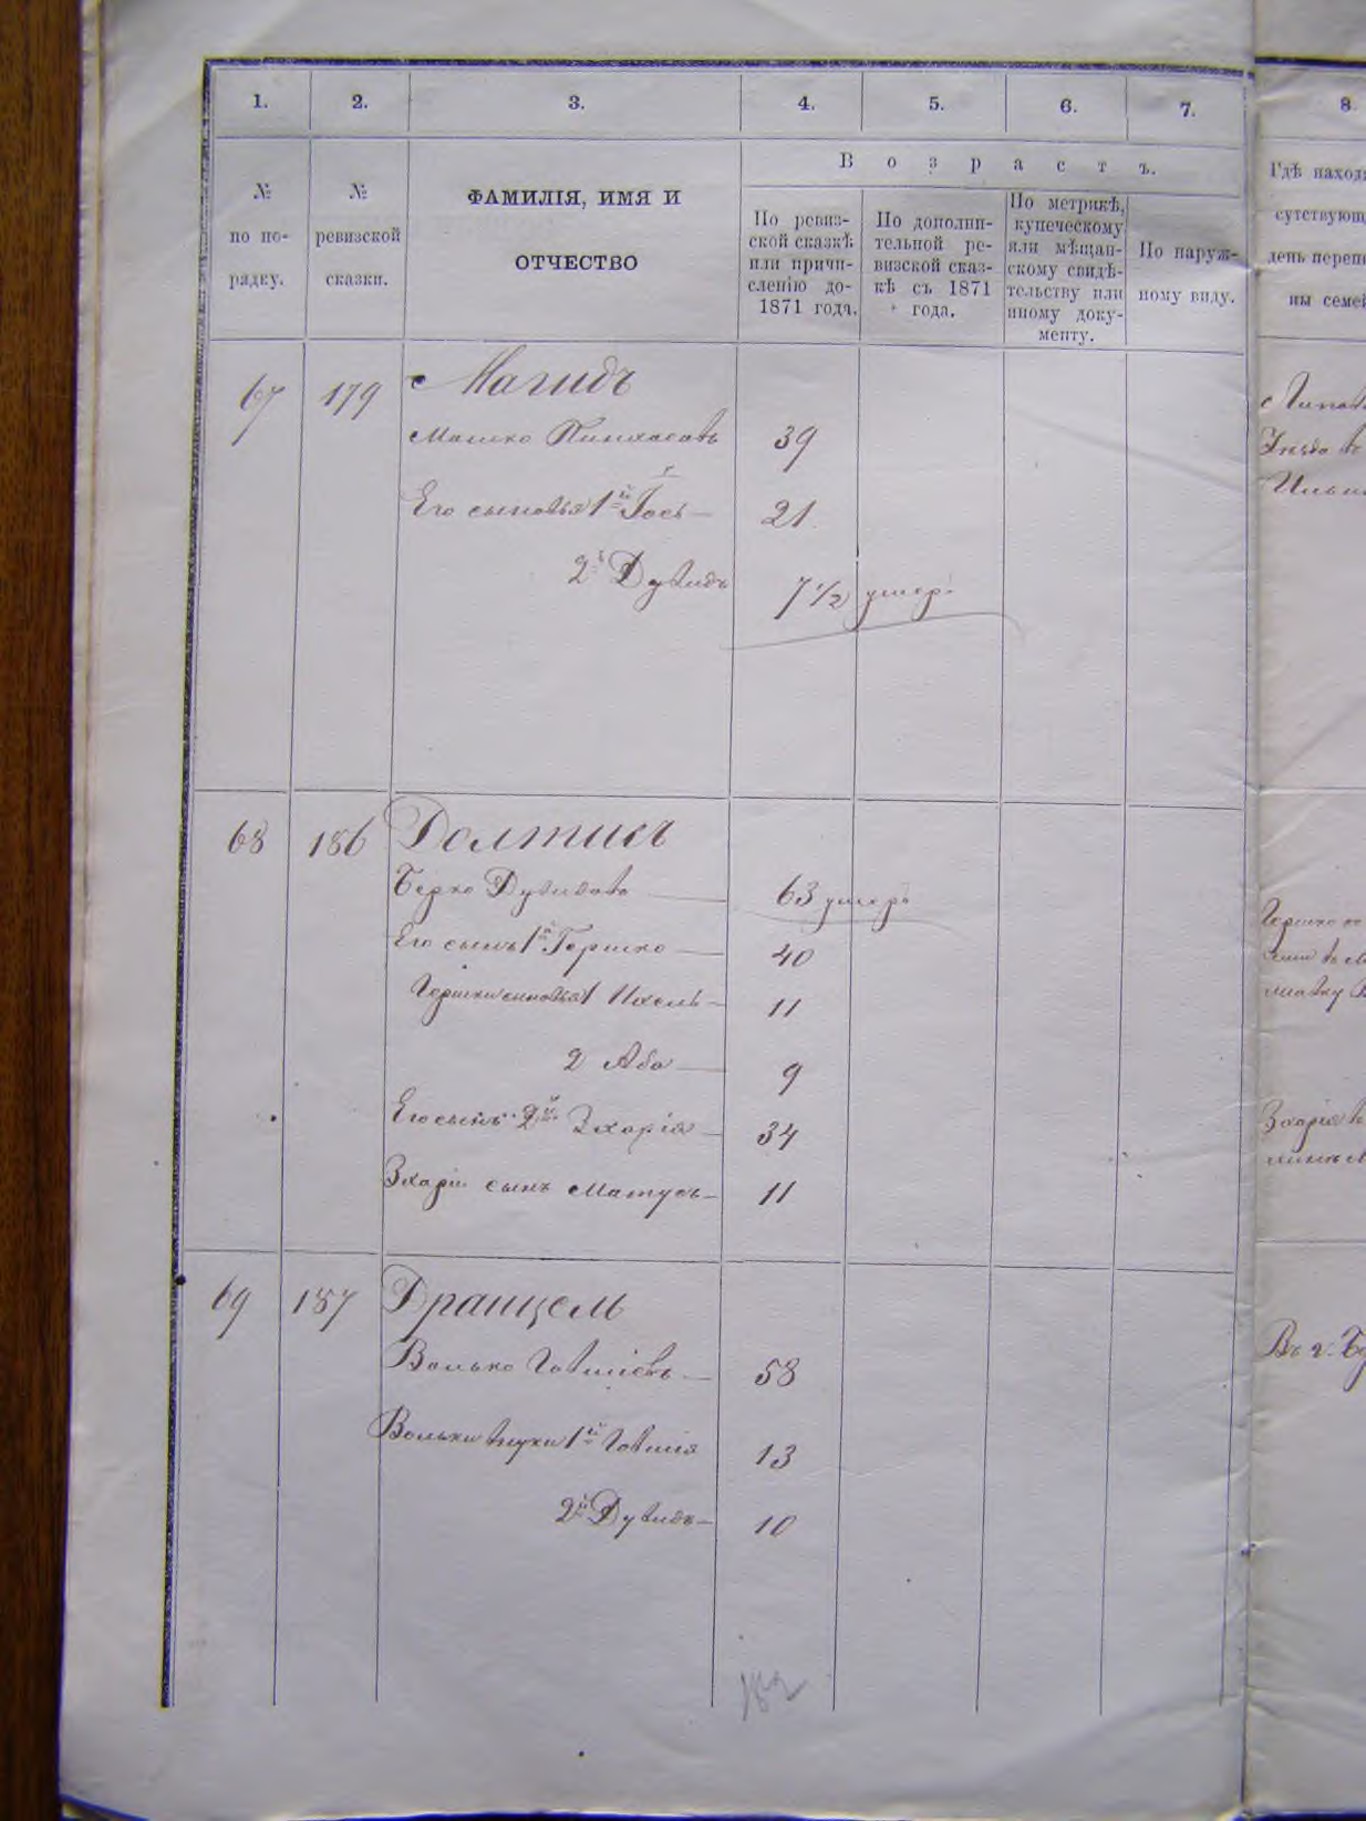 1. 2. 3. 4. 5. 6. 7. 8
№ по по- рядку.
№ ревизской сказки.
ФАМИЛІЯ, ИМЯ И
ОТЧЕСТВО
Возрастъ.
По ревиз-
ской сказкѣ
или причи-
сленію до
1871 года.
По дополни-
тельной ре-
визской сказ-
кѣ съ 1871
года.
По метрикѣ,
купеческому
или мѣщан-
скому свидѣ-
тельству или
иному доку-
менту.
По наруж-
ному виду.
Гдѣ находя
сутствующ
день переп
ны семе
67 179 Магидъ
Мошко Пинхасовъ 39
Его сыновья 1й Іось 21
2й Дувидъ 7 1/2 умеръ
68 186 Долтикъ
Берко Дувидовъ 63 умеръ
Его сынъ 1й Гершко 40
Гершки сыновья 1 Ихель 11
2 Аба 9
Его сынъ 2й Зхарія 34
Зхаріи сынъ Матусъ 11
69 187 Дранцель
Волько Говшіевъ 58
Вольки внуки 1й Говшія 13
2й Дувидъ 10
Гершко
Зхарія
Въ г.